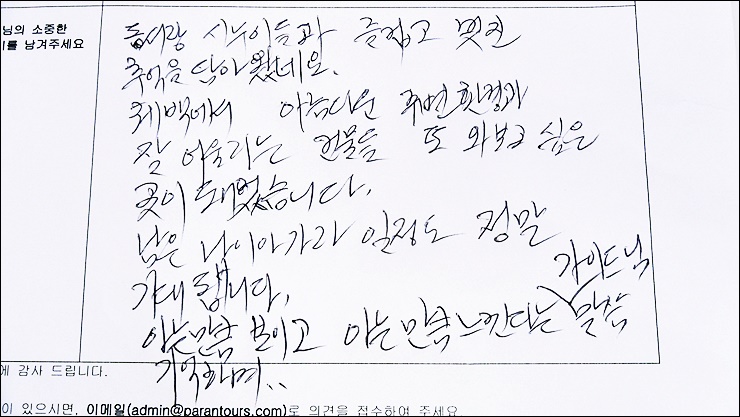 님의 소중한
를 남겨주세요
동서랑 시누이들과 즐겁고 멋진
추억을 담아 왔네요.
퀘백에서 아름다운 주변 환경과
잘 어울리는 건물들 또 와보고 싶은
곳이 되었습니다.
남은 나이아가라 일정도 정말
기대 됩니다.
아는만큼 보이고 아는만큼 느낀다는 가이드님 말씀
기억하며..
에 감사 드립니다.
이 있으시면, 이메일(admin@parantours.com)로 의견을 접수하여 주세요